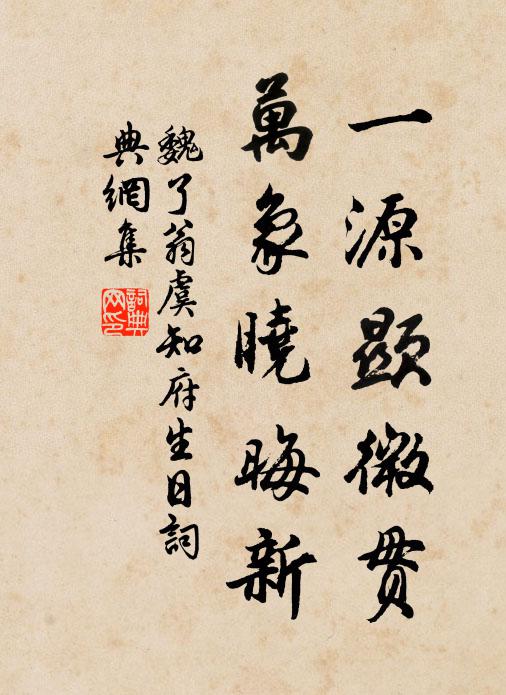 一源顯微貫
萬象曉晦新
魏了翁虞知府生日詞
典網集
詞典網印